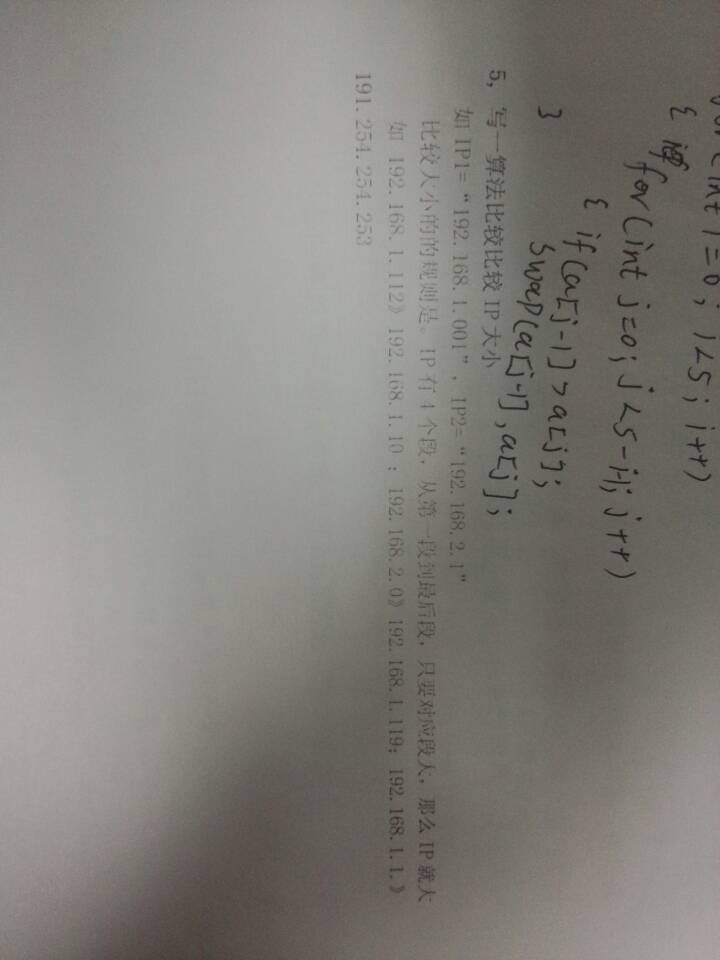 for(int i=0; i<5; i++)
{
for(int j=0; j<5-i-1; j++)
{ if(a[j-1]>a[j];
Swap(a[j-1],a[j];
}
5, 写一算法比较比较 IP 大小
如 IP1=“192.168.1.001”, IP2=“192.168.2.1”
比较大小的的规则是。IP 有 4 个段，从第一段到最后段，只要对应段大，那么 IP 就大
如 192.168.1.112》192.168.1.10；192.168.2.0》192.168.1.119；192.168.1.1.》
191.254.254.253